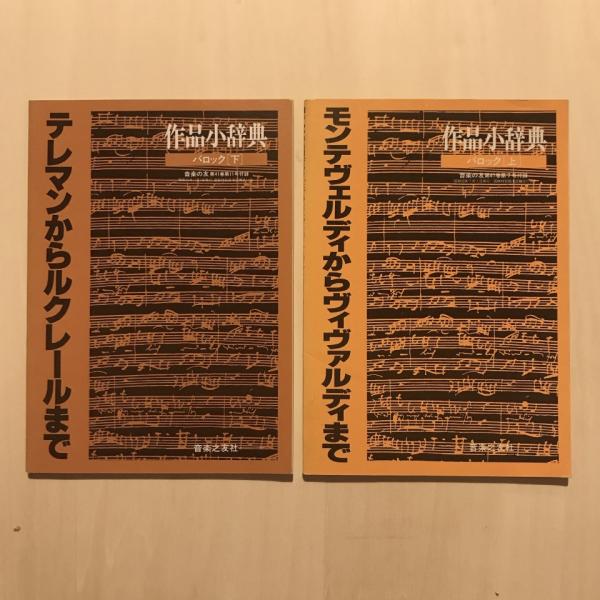 テレマンからルクレールまで
作品小辞典
バロック[下]
音楽の友 第41巻第11号付録
音楽之友社
モンテヴェルディからヴィヴァルディまで
作品小辞典
バロック[上]
音楽の友 第41巻第7号付録
音楽之友社